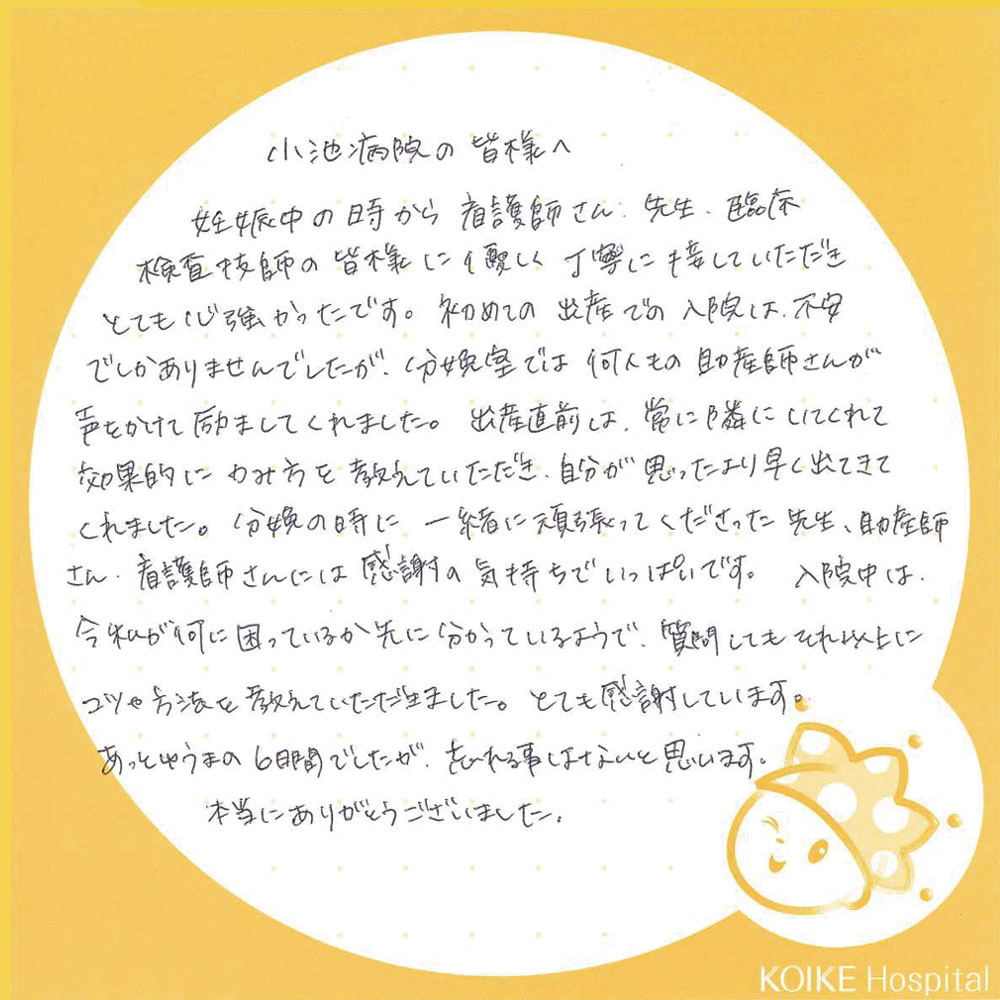 小池病院の皆様へ
妊娠中の時から看護師さん、先生、臨床
検査技師の皆様に優しく丁寧に接していただき
とても心強かったです。初めての出産での入院は、不安
でしかありませんでしたが、分娩室では何人もの助産師さんが
声をかけて励ましてくれました。出産直前は、常に隣にいてくれて
効果的にりみ方を教えていただき、自分が思ったより早く出てきて
くれました。分娩の時に一緒に頑張ってくださった先生、助産師
さん、看護師さんには感謝の気持ちでいっぱいです。入院中は、
今私が何に困っているか先に分かっているようで、質問してもそれ以上に
コツや方法を教えていただきました。とても感謝しています。
あっとゆうまの6日間でしたが、忘れる事はないと思います。
本当にありがとうございました。
KOIKE Hospital